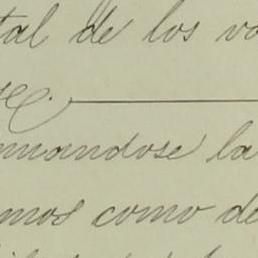 tal de los vo
se.
mandose la
mos como de